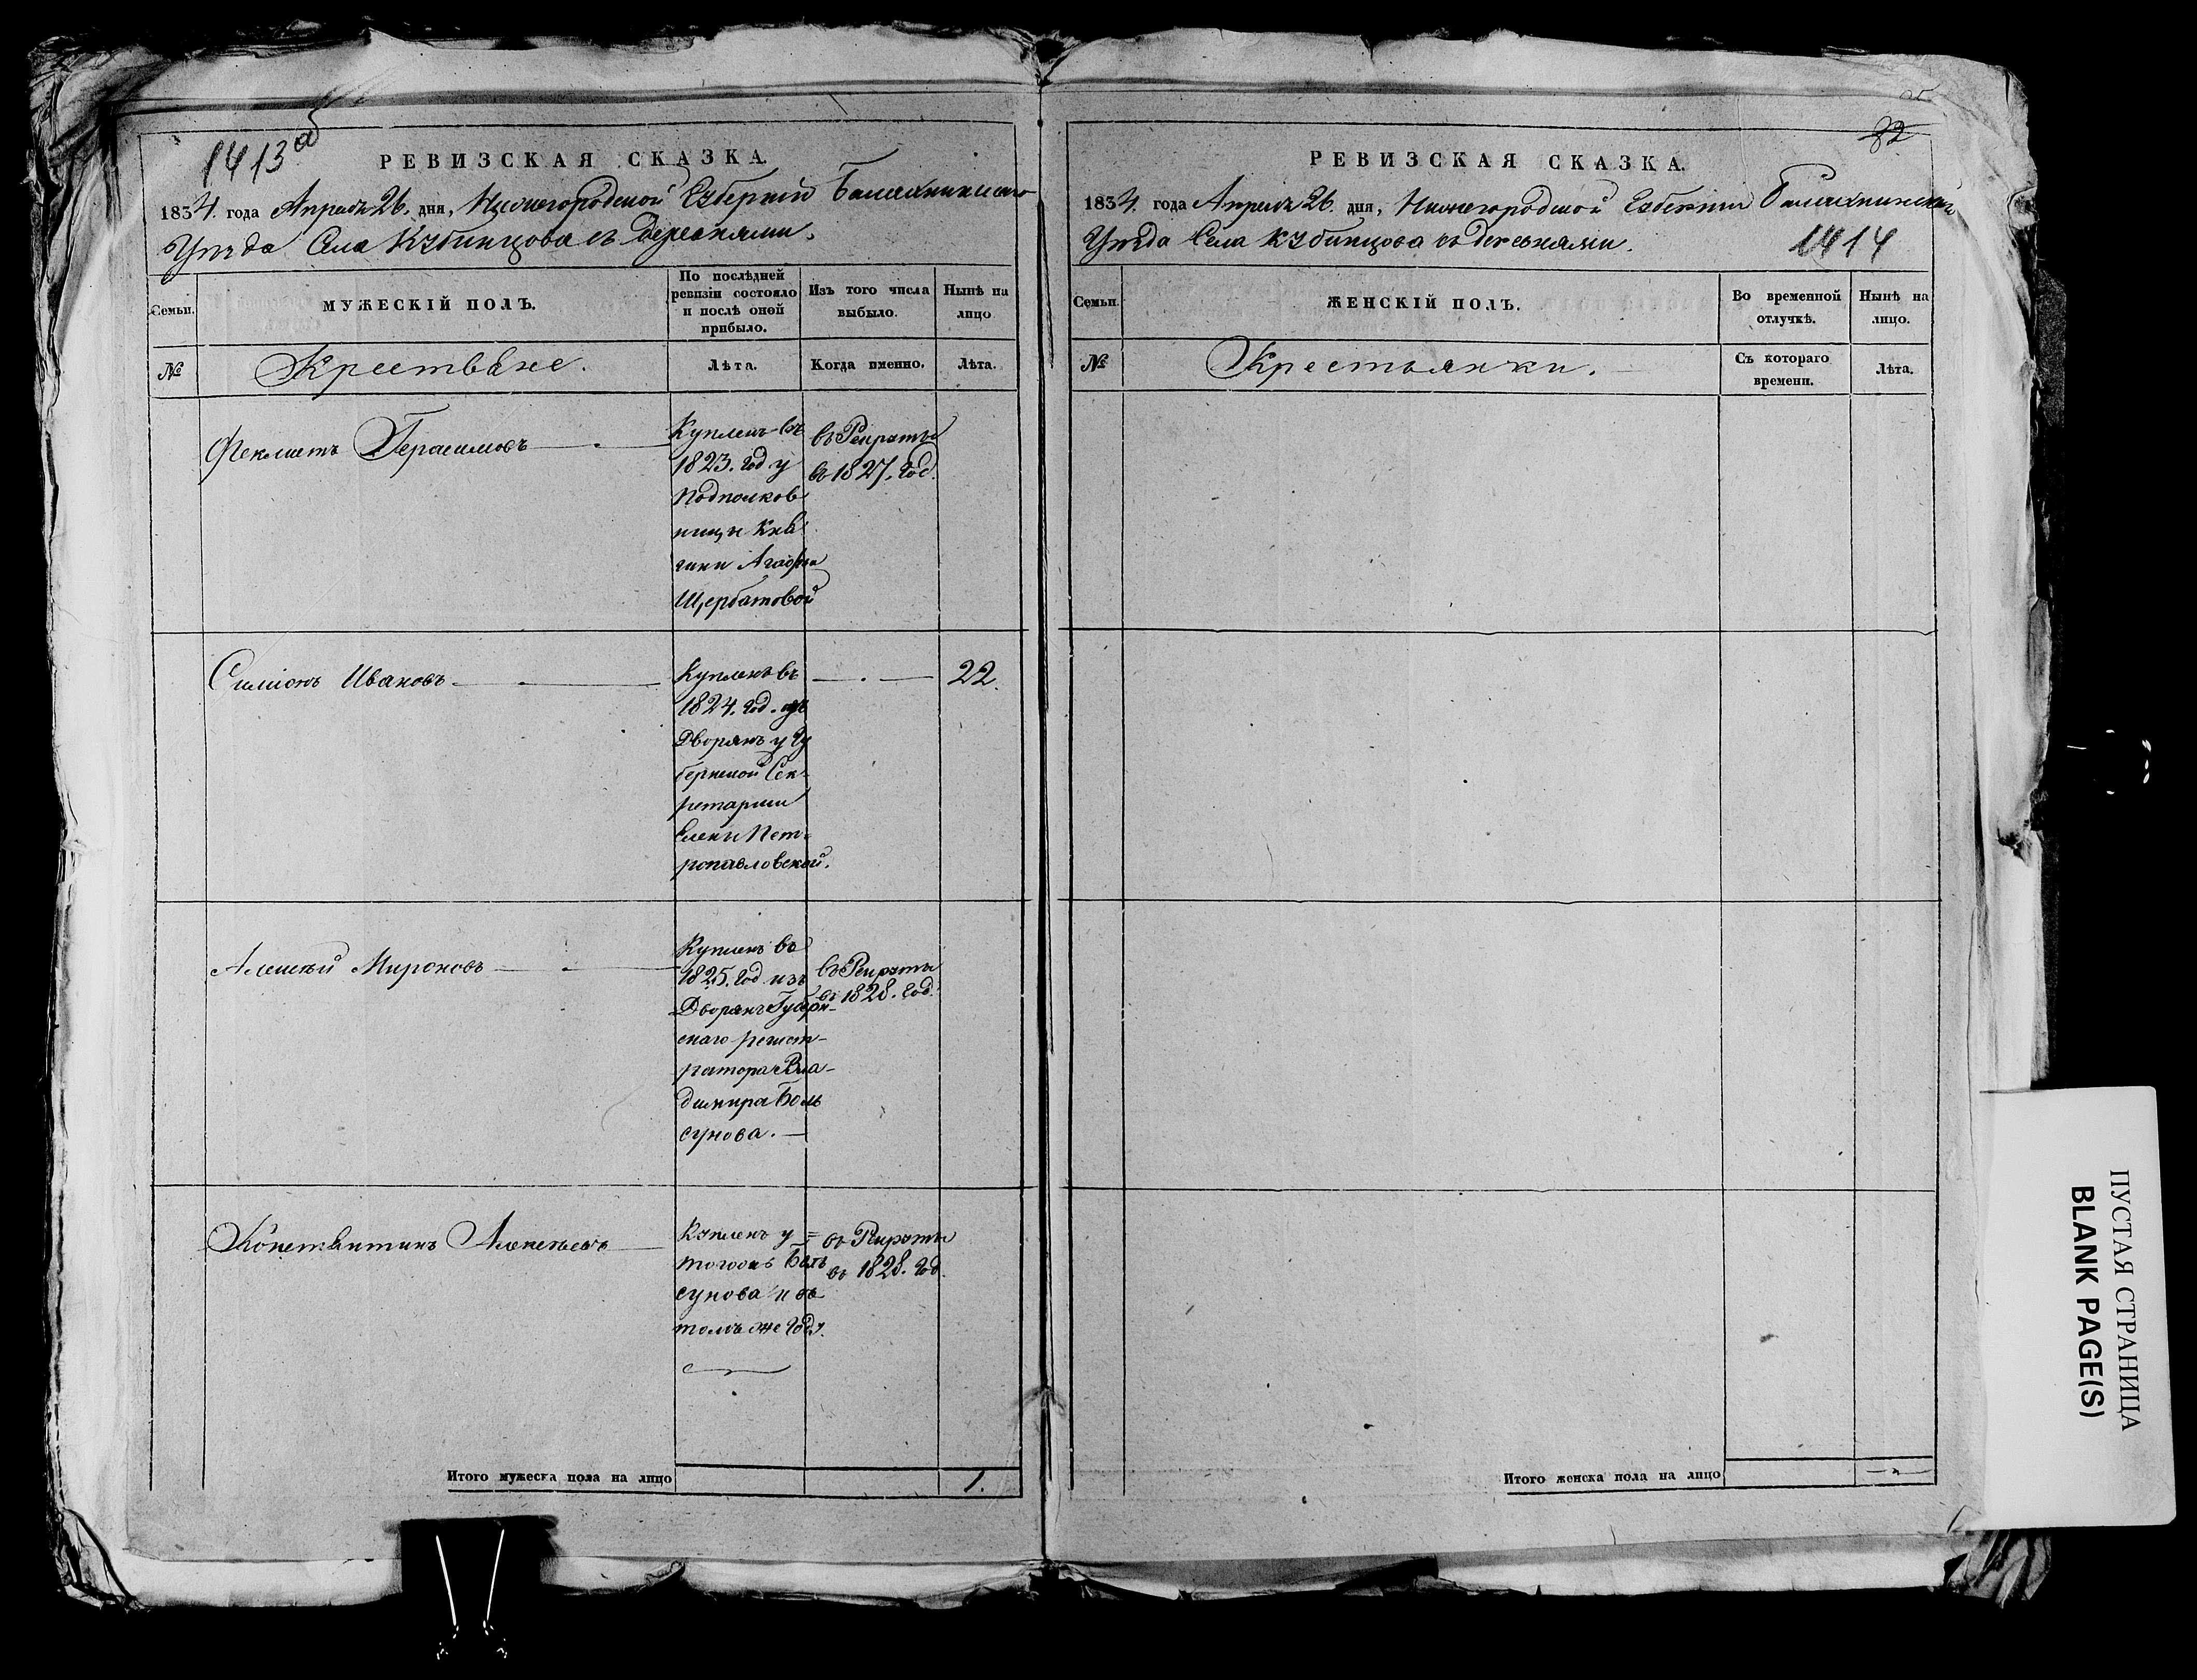 1413 а
РЕВИЗСКАЯ СКАЗКА.
1834. года Апреля 26. дня, Нижегородской Губернии Балахнинскаго
Уезда Села Кубинцова съ деревнями.
Семьи.
МУЖЕСКІЙ ПОЛЪ.
По послѣдней
ревизіи состояло
и послѣ оной
прибыло.
Изъ того числа
выбыло.
Нынѣ на
лицо
№
Крестьяне.
Лѣта.
Когда именно.
Лѣта.
Феклистъ Герасимовъ
Купленъ въ
1823. год у
Подполков
ницы Кня
гини Агафьи
Щербатовой
въ Рекруты
въ 1827. год.
Симіонъ Ивановъ
Купленъ въ
1824. год. изъ
Дворянъ у Гу
бернской Сек-
ретарши
Елены Пет-
ропавловской.
22.
Алексѣй Мироновъ
Купленъ въ
1825. год изъ
Дворянъ Губерн-
скаго регист-
ратора Вла-
димира Боль
сунова.
въ Рекруты
въ 1828. год.
Константинъ Алексѣевъ
Купленъ у =
тогожъ Боль
сунова и въ
томъ же году.
въ Рекруты
въ 1828. год.
Итого мужеска пола на лицо
1.
82
РЕВИЗСКАЯ СКАЗКА.
1834. года Апреля 26. дня, Нижегородской Губернии Балахнинскаго
Уезда Села Кубинцова съ деревнями.
1414
Семьи.
ЖЕНСКІЙ ПОЛЪ.
Во временной
отлучкѣ.
Нынѣ на
лицо.
№
Крестьянки.
Съ котораго
времени.
Лѣта.
Итого женска пола на лицо
ПУСТАЯ СТРАНИЦА
BLANK PAGE(S)